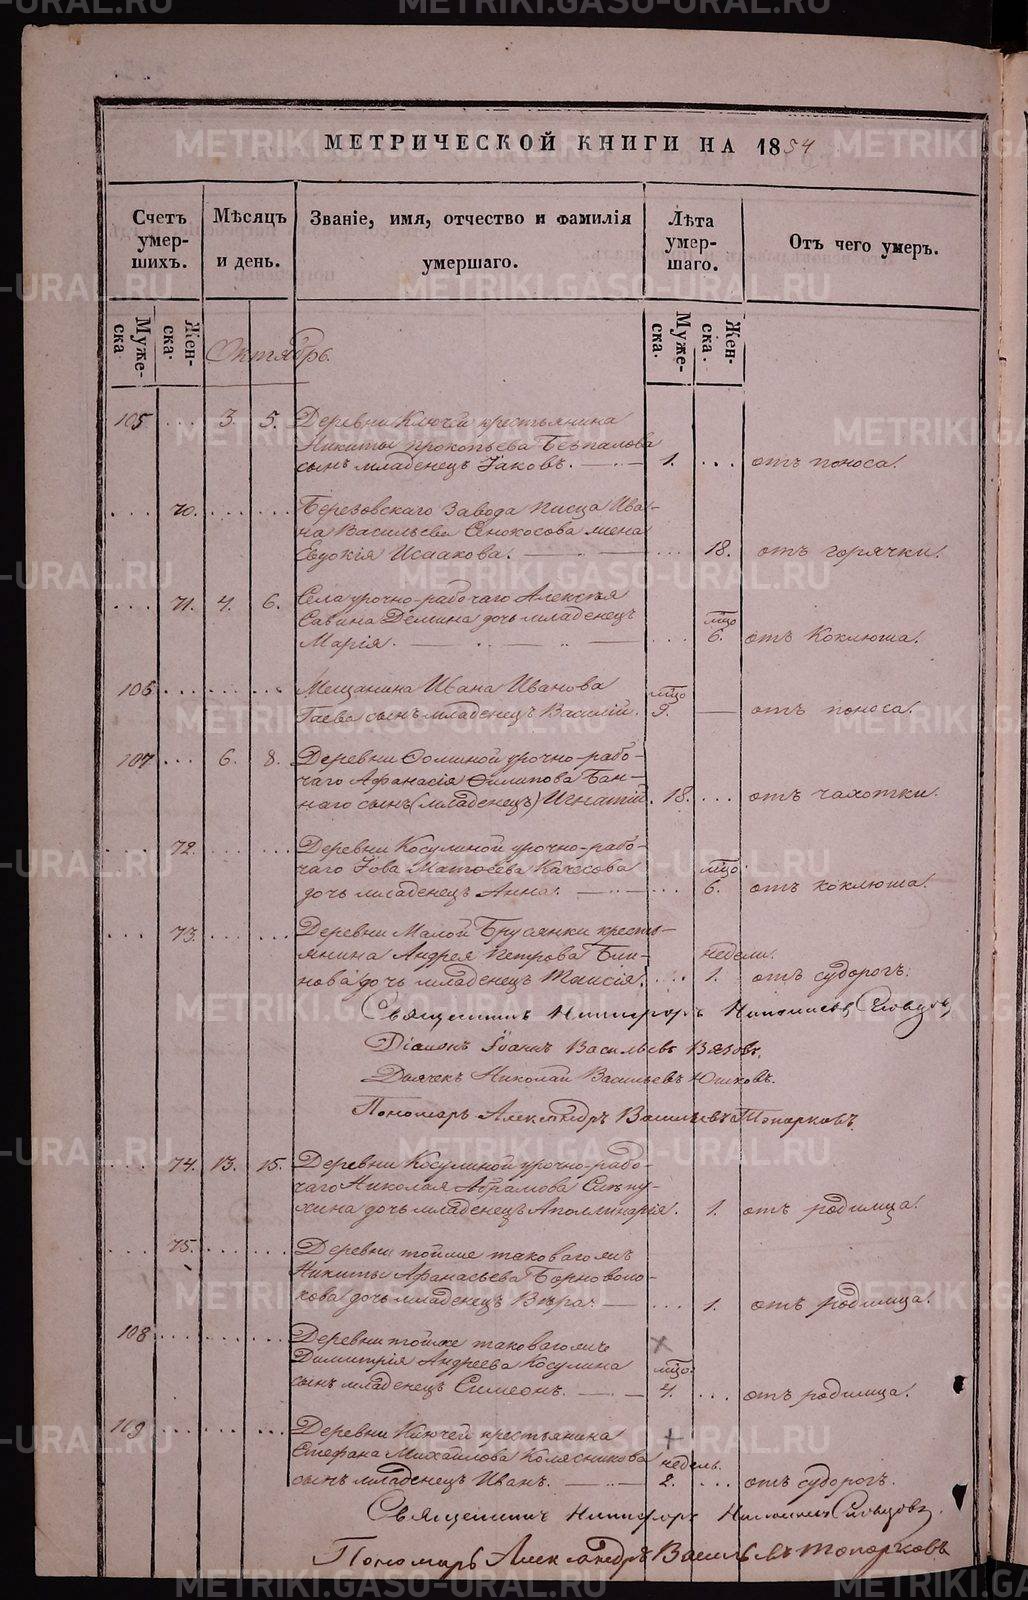 МЕТРИЧЕСКОЙ КНИГИ НА 1854
Счетъ умер- шихъ.
Мѣсяцъ и день.
Званіе, имя, отчество и фамилія умершаго.
Лѣта умер- шаго.
Отъ чего умеръ.
Муже- ска
Жен- ска.
Муже- ска.
Жен- ска.
Октябрь.
105 ... 3. 5. Деревни Ключей крестьянина
Никиты Прокопьева Безпалова
сынъ младенецъ Іаковъ. 1. ... отъ поноса.
70. Березовскаго Завода писца Ива-
на Васильева Сѣнокосова жена
Евдокія Исаакова. ... 18. отъ горячки.
71. 4. 6. Села урочно-рабочаго Алексѣя
Савина Демина дочь младенецъ мцо
Марія. ... 6. отъ коклюша.
106 Мещанина Ивана Иванова мцо
Гаева сынъ младенецъ Василій. 9. — отъ поноса.
107 ... 6. 8. Деревни Фоминой урочно-рабо-
чаго Афанасія Филипова Бан-
наго сынъ (младенецъ) Игнатій. 18. ... отъ чахотки.
72. Деревни Косулиной урочно-рабо-
чаго Іова Матѳеева Качесова мцо
дочь младенецъ Анна. ... 6. отъ коклюша.
73. Деревни Малой Брусянки кресть-
янина Андрея Петрова Бли- недели.
нова дочь младенецъ Таисія. ... 1. отъ судорогъ.
Священникъ Никифоръ Словцовъ
Діаконъ Іоаннъ Васильевъ
Дьячекъ Николай Васильевъ Юшковъ.
Пономарь Александръ Васильевъ Топорковъ.
74. 13. 15. Деревни Косулиной урочно-рабо-
чаго Николая Абрамова Слѣпу-
хина дочь младенецъ Аполлинарія. 1. отъ родимца.
75. Деревни тойже таковагожъ
Никиты Афанасьева Борноволо-
кова дочь младенецъ Вѣра. ... 1. отъ родимца.
108 Деревни тойже таковагожъ
Димитрія Андреева Косулина мцо.
сынъ младенецъ Симеонъ. 4. ... отъ родимца.
109 Деревни Ключей крестьянина
Стефана Михайлова Колясникова недель.
сынъ младенецъ Иванъ. 2. ... отъ судорогъ.
Священникъ Никифоръ Словцовъ.
Пономарь Александръ Васильевъ Топорковъ
METRIKI.GASO-URAL.RU